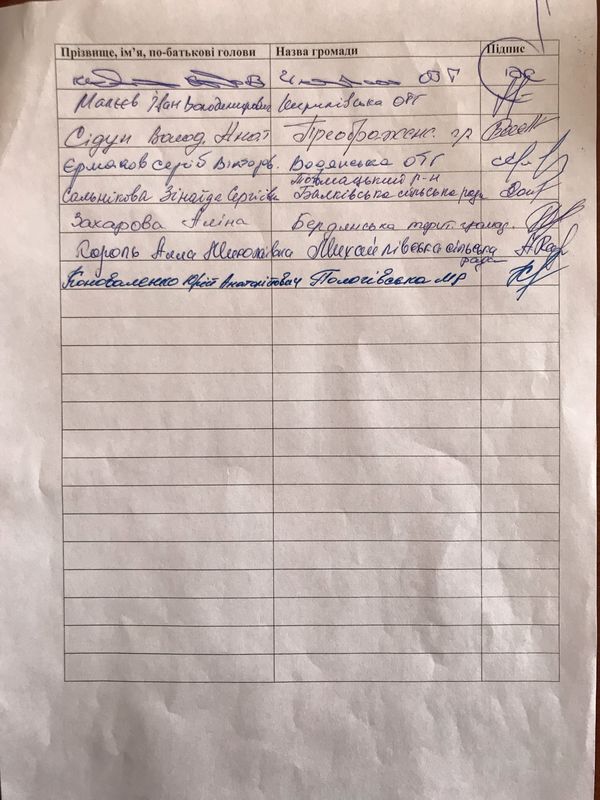 Прізвище, ім'я, по-батькові голови Назва громади Підпис
ОТГ
Малєєв Іван Володимирович Кирилівська ОТГ
Сідун Волод. Анат Преображенс. гр
Єрмаков Сергій Вікторов. Водянська ОТГ
р-н
Сальнікова Зінаїда Сергіївна Балківська сільська рада
Захарова Аліна Бердянська терит. громад.
Король Алла Миколаївна Михайлівська сільська
рада
Коноваленко Юрій Анатолійович Пологівська МР